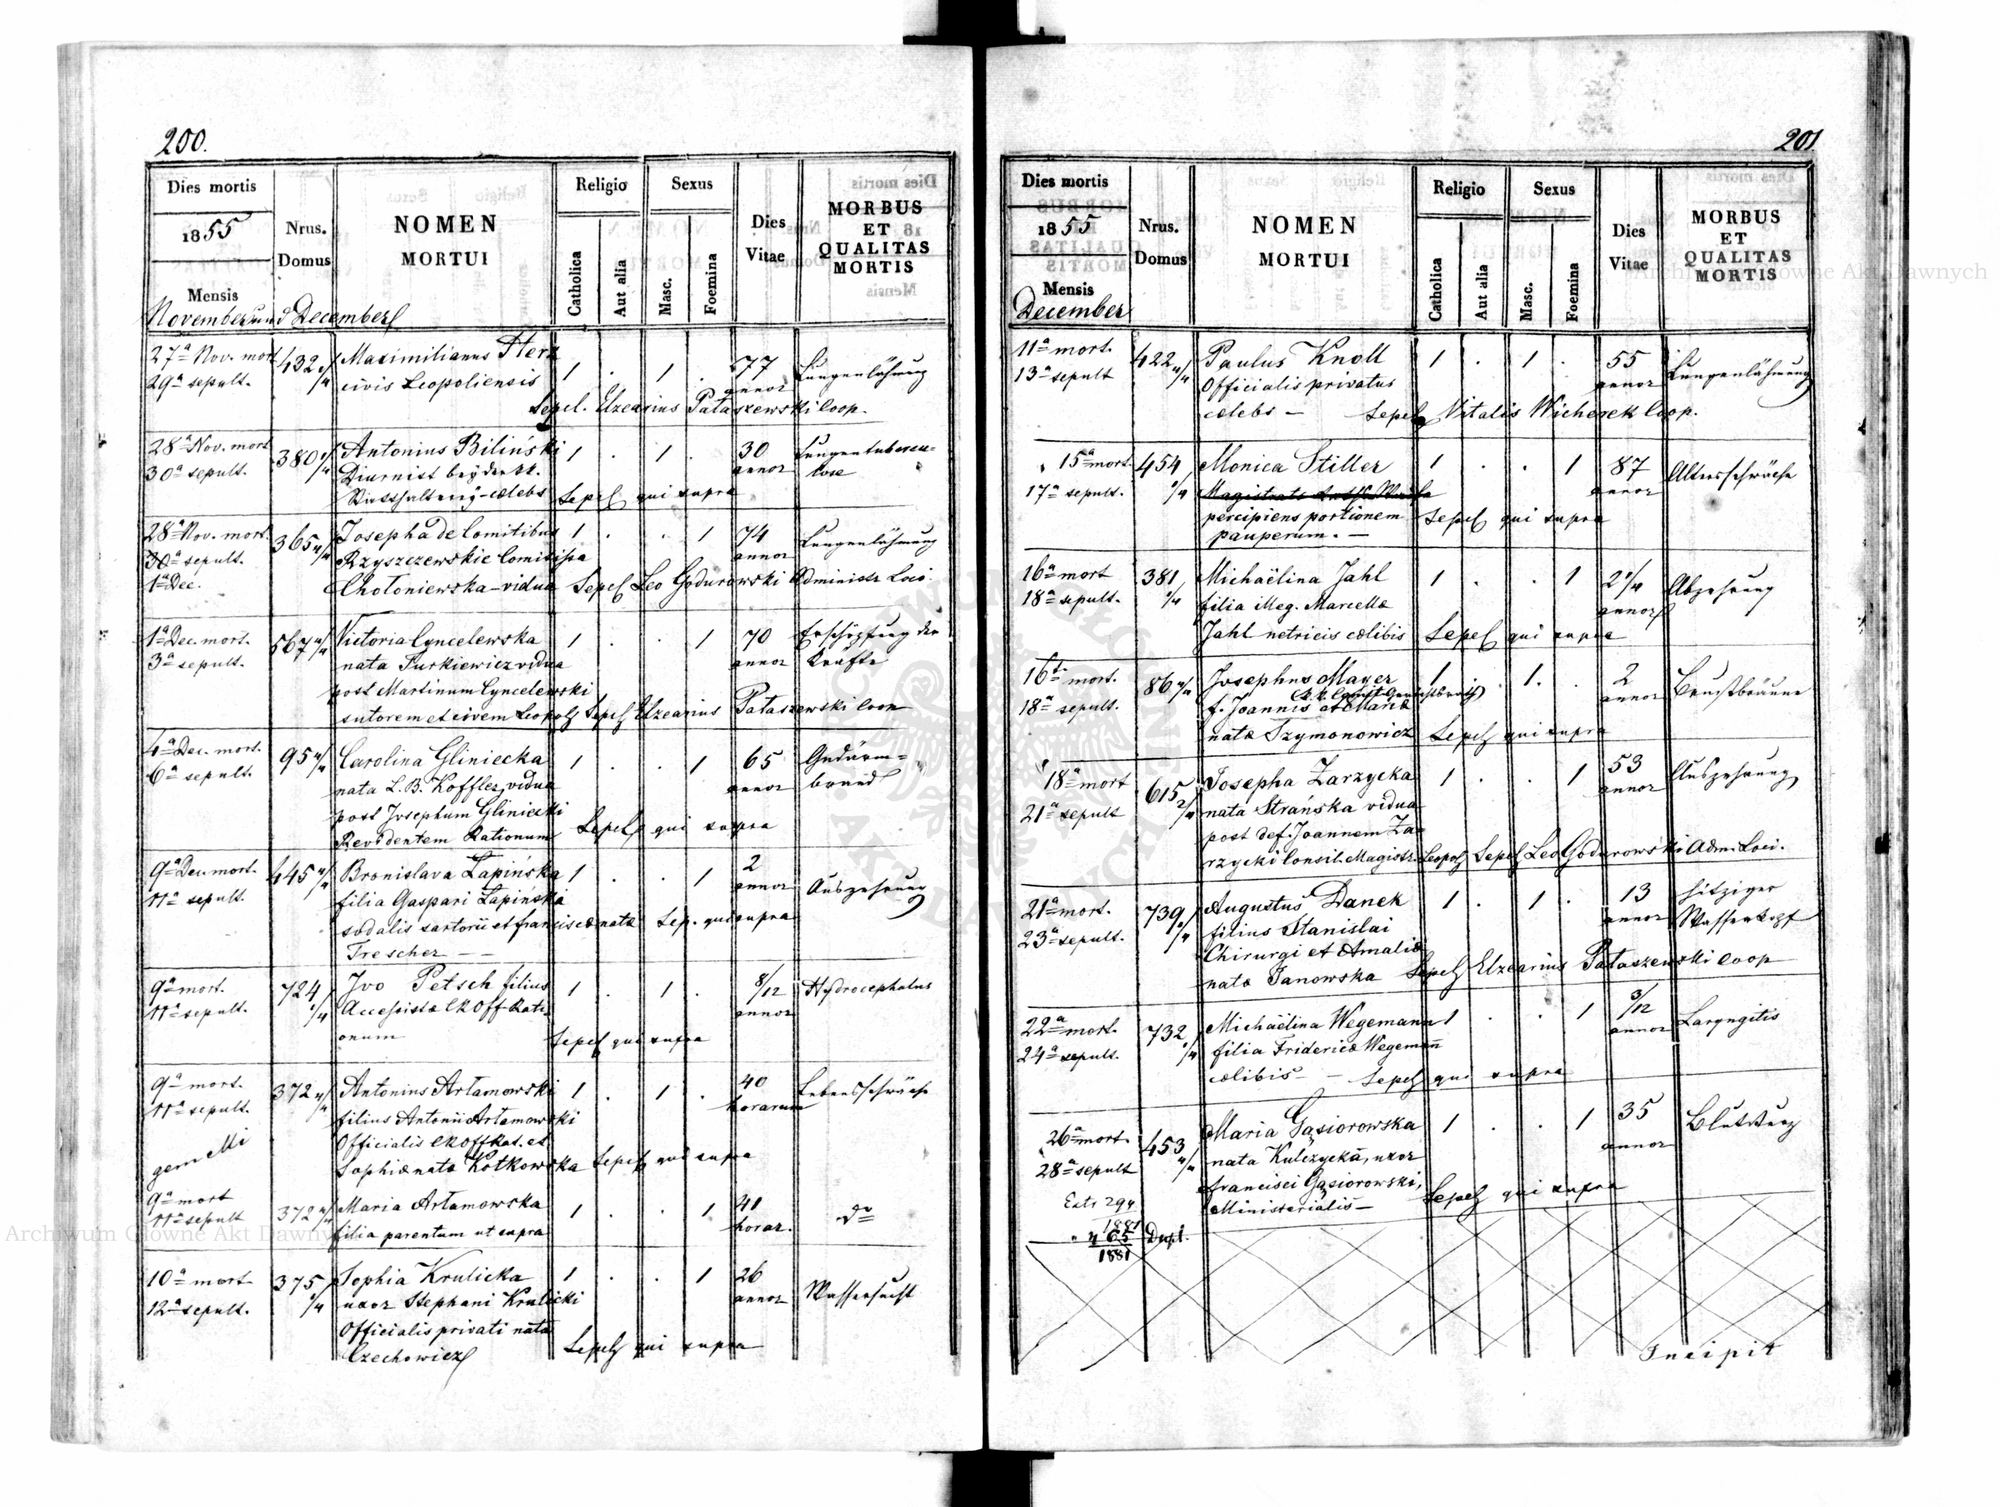 200.
Dies mortis
1855
Mensis
November und December
Nrus. Domus
NOMEN MORTUI
Religio
Catholica
Aut alia
Sexus
Masc.
Foemina
Dies Vitae
MORBUS ET QUALITAS MORTIS
27a Nov. mort. 432 4/4 Maximilianus Herz 1 . 1 . 77 Lungenlähmung
29a sepult. civis Leopoliensis annor
Sepel. Elzearius Pataszewski Coop.
28a Nov. mort. 380 4/4 Antonius Biliński 1 . 1 . 30 Lungentubercu-
30a sepult. Diurnist bey der kk. annor lose
caelebs Sepel qui supra
28a Nov. mort. 365 4/4 Josepha de Comitibus 1 . . 1 74 Lungenlähmung
30a sepult. Rzyszczewskie Comitissa annor
1a Dec. Chołoniewska - vidua Sepel Leo Godurowski Administr Loci.
1a Dec. mort. 567 4/4 Victoria Cyncelewska 1 . . 1 70 Erschöpfung der
3a sepult. nata Turkiewicz vidua annor Kräfte
post Martinum Cyncelewski
sutorem et civem Leopol Sepel Elzearius Pataszewski Coop
4a Dec. mort. 95 4/4 Carolina Gliniecka 1 . . 1 65 Gedärm-
6a sepult. nata L. B. Koffler, vidua annor brand
post Josephum Gliniecki
Revidentem Rationum Sepel qui supra
9a Dec. mort. 445 4/4 Bronislava Łapińska 1 . . 1 2
11a sepult. filia Gaspari Łapiński annor Auszehrung
sodalis sartorii et Franciscae natae Sep. qui supra
Trescher — —
9a mort. 724 Ivo Petsch filius 1 . 1 . 8/12 Hydrocephalus
11a sepult. /4 Accessistae CROff Rati- annor
onum Sepel qui supra
9a mort. 372 4/4 Antonius Artamowski 1 . 1 . 40 Lebensschwäche
11a sepult. filius Antonii Artamowski horarum
gemelli Officialis CROffRat. et
Sophiae natae Kotkowska Sepel qui supra
9a mort 372 4/4 Maria Artamowska 1 . . 1 41 do
11a sepult filia parentum ut supra horar.
10a mort 375 Sophia Krulicka 1 . . 1 26 Wassersucht
12a sepult. /4 uxor Stephani Krulicki annor
Officialis privati nata
Czechowicz Sepel qui supra
201
Dies mortis
1855
Mensis
December
Nrus. Domus
NOMEN MORTUI
Religio
Catholica
Aut alia
Sexus
Masc.
Foemina
Dies Vitae
MORBUS ET QUALITAS MORTIS
11a mort. 422 4/4 Paulus Knoll 1 . 1 . 55 Lungenlähmung
13a sepult Officialis privatus annor
caelebs — Sepel Vitalis Wicherek Coop.
15a mort. 454 Monica Stiller 1 . . 1 87 Altersschwäche
17a sepult. /4 annor
percipiens portionem Sepel qui supra
pauperum. —
16a mort 381 Michaëlina Jahl 1 . . 1 2 /4 Abzehrung
18a sepult. /4 filia illeg. Marcellae annor
Jahl netricis caelibis Sepel qui supra
16a mort. 86 4/4 Josephus Mayer 1 . 1 . 2 Brustbräune
18a sepult. f. Joannis et Mariae annor
natae Szymonowicz Sepel qui supra
18a mort 615 Josepha Zarzycka 1 . . 1 53 Auszehrung
21a sepult 2/4 nata Strańska vidua annor
post def. Joannem Za-
rzycki Consil. Magistr. Leopol Sepel Leo Godurowski Adm. Loci.
21a mort. 739 Augustus Danek 1 . 1 . 13 hitziger
23a sepult. /4 filius Stanislai annor Wasserkopf
Chirurgi et Amaliae
natae Janowska Sepel Elzearius Pataszewski Coop
22a mort. 732 Michaëlina Wegemann 1 . . 1 3/12 Laryngitis
24a sepult. /4 filia Fridericae Wegemann annor
caelibis — Sepel qui supra
26a mort. 453 Maria Gąsiorowska 1 . . 1 35 Blutsturz
28a sepult 4/4 nata Kulczycka, uxor annor
Francisci Gąsiorowski,
Ministerialis — Sepel qui supra
Extr 294
1881
" 465 Dupl.
1881
Incipit
Archiwum Główne Akt Dawnych
Archiwum Główne Akt Dawnych